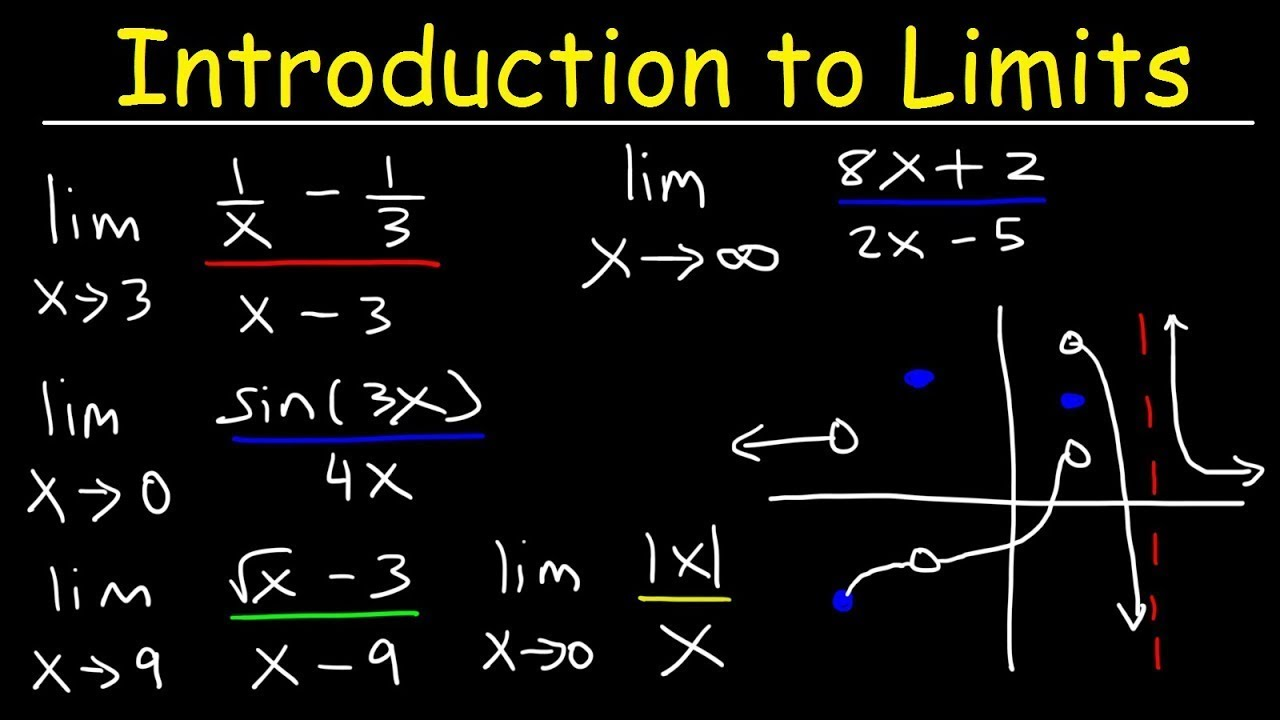 Introduction to Limits
lim x→3 (1/x - 1/3)/(x - 3)
lim x→∞ (8x + 2)/(2x - 5)
lim x→0 sin(3x)/4x
lim x→9 (√x - 3)/(x - 9)
lim x→0 |x|/x